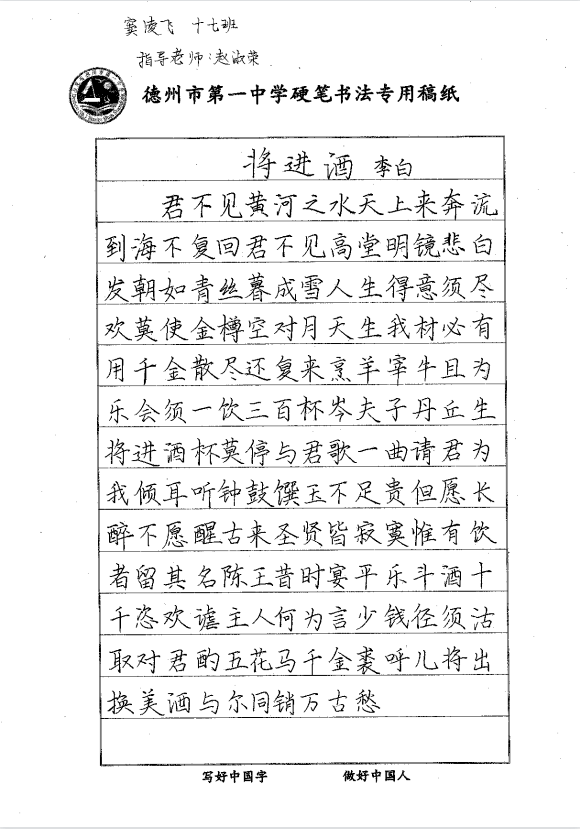 窦凌飞 十七班
指导老师：赵淑荣
德州市第一中学硬笔书法专用稿纸
将进酒 李白
君不见黄河之水天上来奔流
到海不复回君不见高堂明镜悲白
发朝如青丝暮成雪人生得意须尽
欢莫使金樽空对月天生我材必有
用千金散尽还复来烹羊宰牛且为
乐会须一饮三百杯岑夫子丹丘生
将进酒杯莫停与君歌一曲请君为
我倾耳听钟鼓馔玉不足贵但愿长
醉不愿醒古来圣贤皆寂寞惟有饮
者留其名陈王昔时宴平乐斗酒十
千恣欢谑主人何为言少钱径须沽
取对君酌五花马千金裘呼儿将出
换美酒与尔同销万古愁
写好中国字 做好中国人